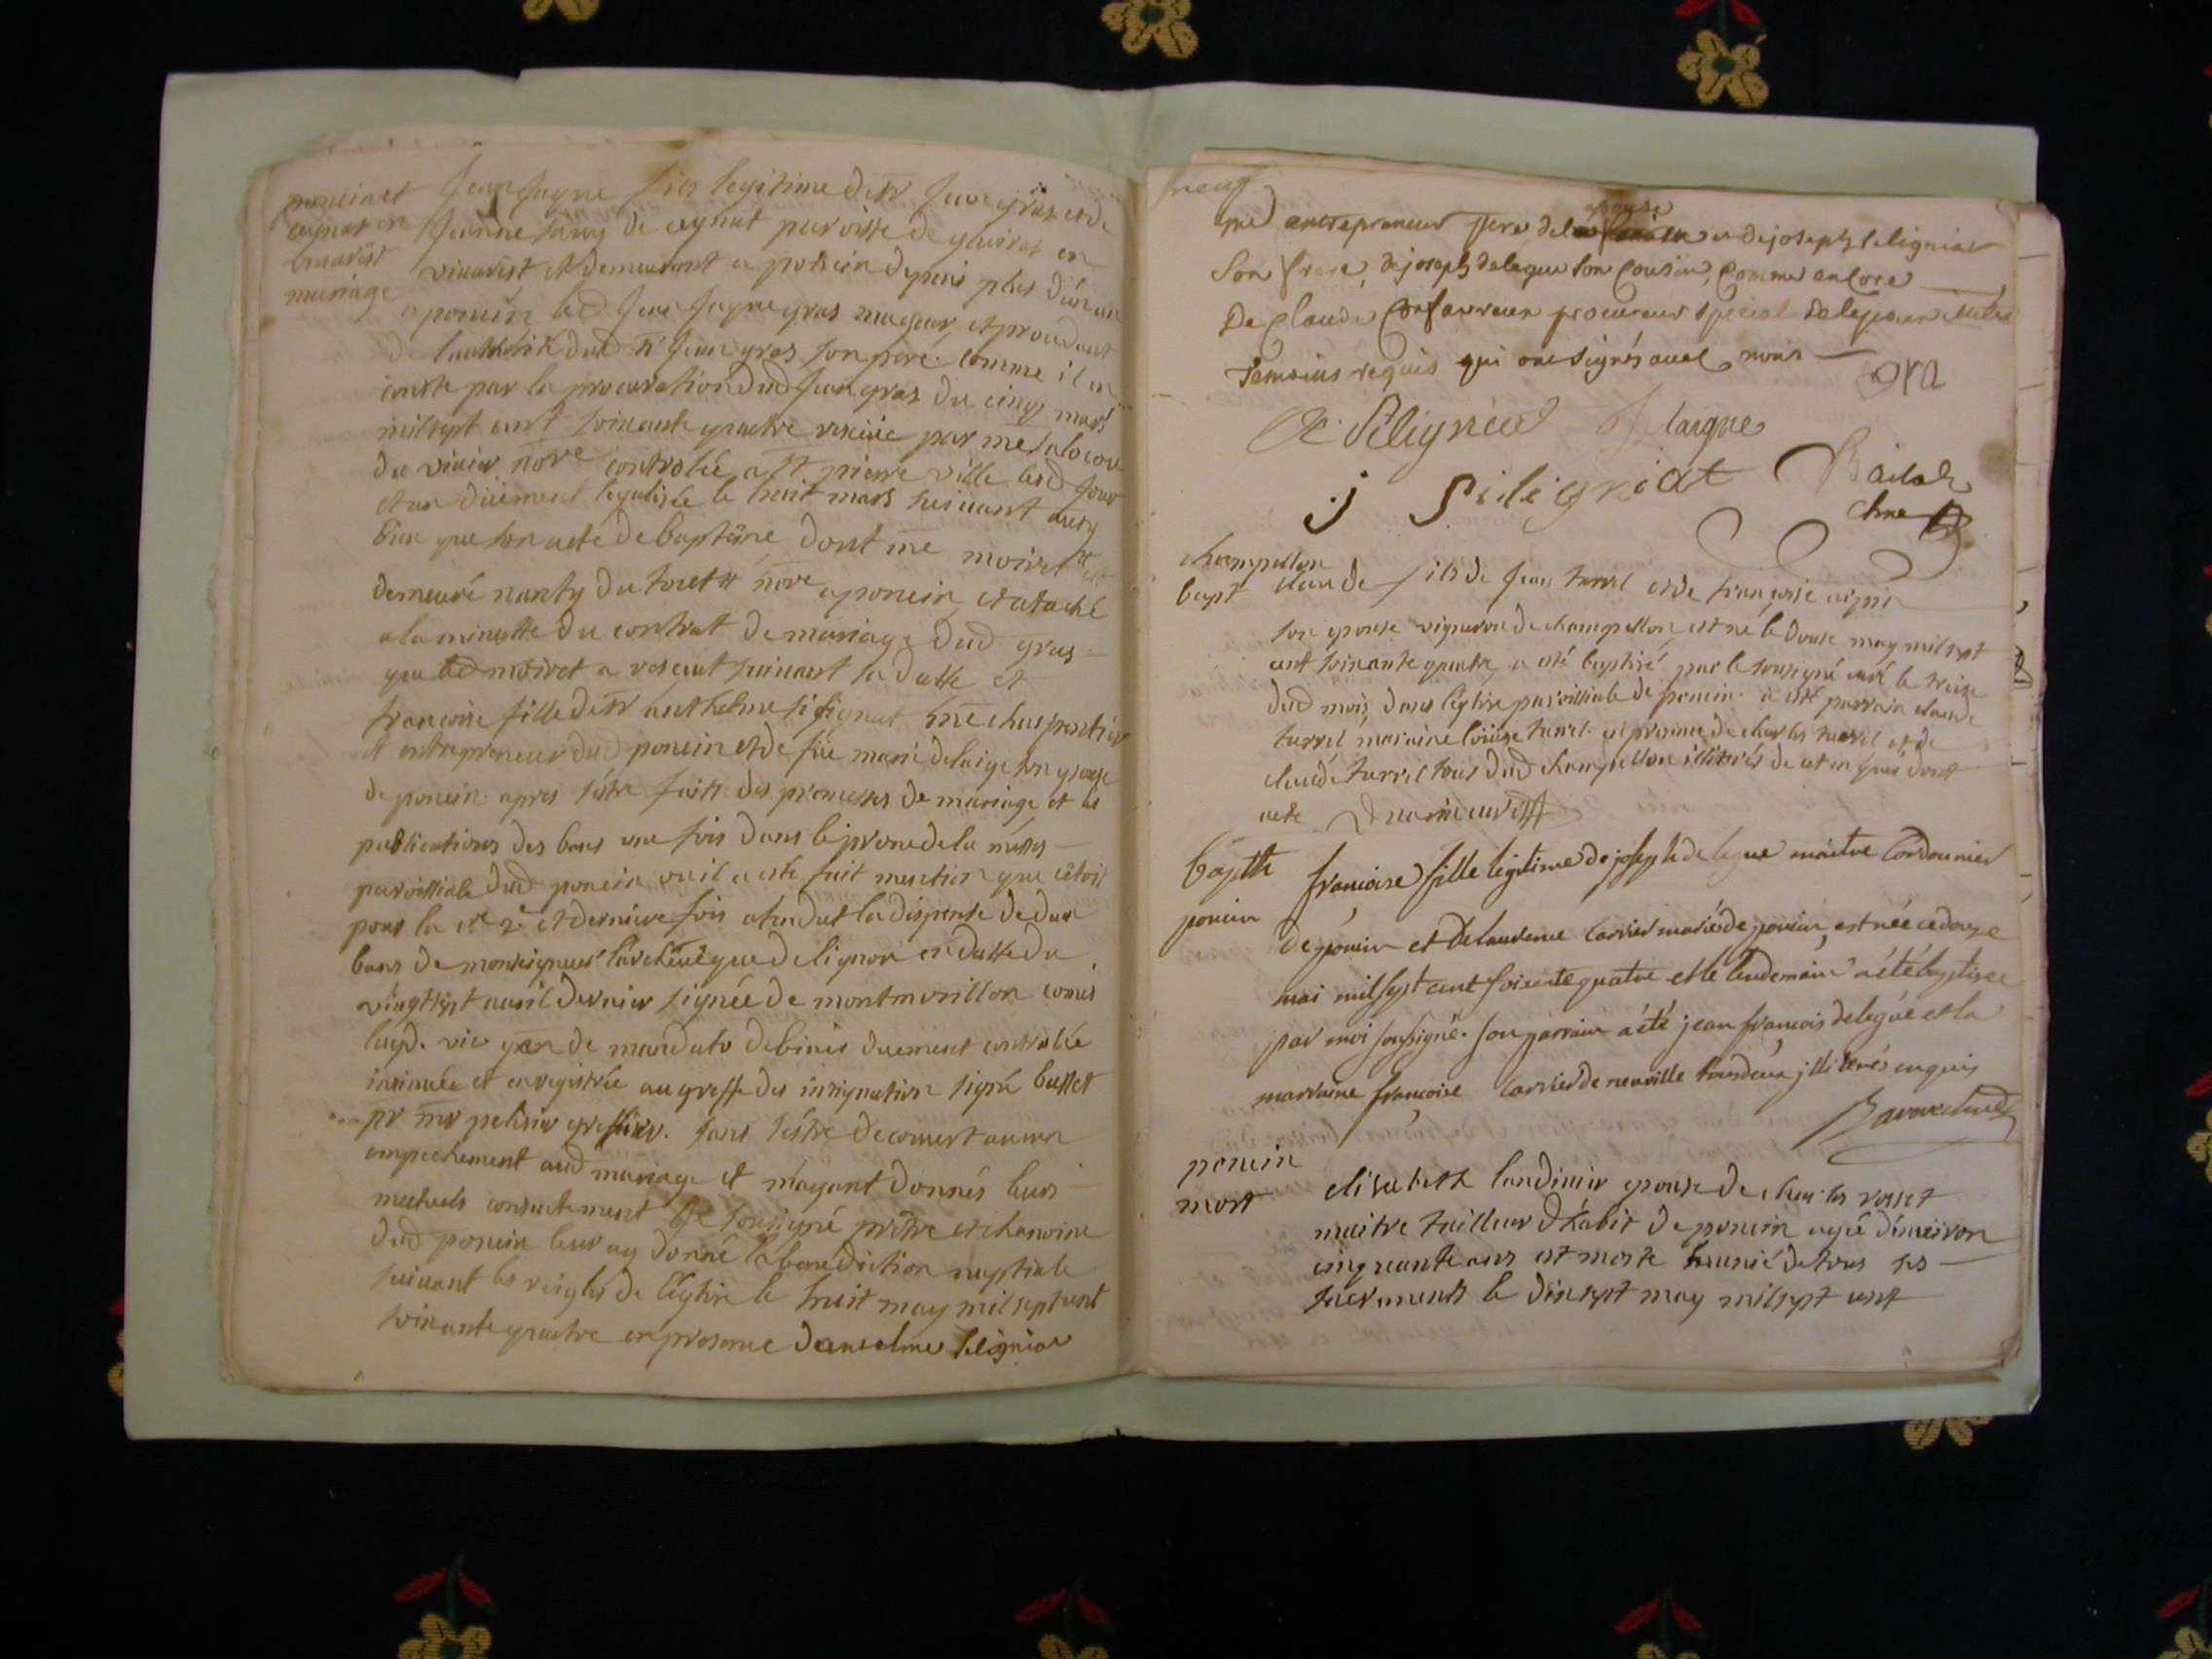 poncin et
en
vivarest
mariage
Jean Jayme fils legitime de Sr Jean gras et de
Jeanne de paroisse de en
vivarest et demeurant a poncin depuis plus d'un an
a poncin led Jean Jayme gras majeur, et procedant
de lauthorité dud Sr Jean gras son pere comme il en
conste par la procuration dud Jean gras du cinq mars
mil sept cent soixante quatre receüe par me
du vivier nore controlée a St pierre ville led jour
et an düement legalisée le huit mars suivant aussy
bien que son acte de baptême dont me moiret
demeuré nanty du tout nore a poncin et ataché
a la minutte du contrat de mariage dud gras
que led moiret a receut suivant sa datte et
francoise fille de Sr anthelme silignat me charpentier
et entrepreneur dud poncin et de füe marie delaigue son epouse
de poncin. apres s'être faits des promesses de mariage et les
publications des bans une fois dans le prone de la messe
paroissiale dud poncin ou il a esté fait mention que c'étoit
pour la 1re 2e et derniere fois atendut la dispense de deux
bans de monseigneur l'archevêque de lignon en datte du
vingt sept avril dernier signée de montmorillon comes
lugd. vic gen de mandato debinis duement controlée
insinuée et enregistrée au greffe des insignuation signé busset
pr mr pelisier greffier. sans s'éstre decouvert aucun
empechement aud mariage et m'ayant donnés leurs
mutuels consentement je soussigné prêtre et chanoine
dud poncin leur ay donné la benediction nuptiale
suivant les reigles de l'église le huit may mil sept cent
soixante quatre en presence danselme silignat
neuf
me entrepreneur pere de la epouse et de joseph silignat
Son frere, de joseph delegue son Cousin, Comme encore
De Claude Confavreux procureur special delepoux etabli
Temoins requis qui ont signés avec nous
gra
A Silignat J laigue
j Silignat
chne
champellon
bapt
claude fils de Jean turrel et de françoise
son epouse vigneron de champellon, est né le douse may mil sept
cent soixante quatre, a eté baptisé par le sousigné curé le treise
dud mois, dans l'église paroissiale de poncin. a eté parrain claude
turrel, maraine loüise turrel en presence de charles turrel et de
claude turrel tous dud champellon illitirés de ce enquis dont
acte
baptte
poncin
francoise fille legitime de joseph delegue maitre Cordonnier
de poncin et de laurence Carrier mariés de poncin, est née ce douze
mai mil sept cent soixante quatre et le lendemain a été baptisee
par moi soussigné. son parrain a été jean francois delegue et la
marraine francoise Carrier de neuville tous deux illiterés enquis
poncin
mort
elisabeth landinier epouse de charles rosset
maitre tailleur d'habit de poncin agée d'environ
cinquante ans est morte munié de tous ses
sacrements le dixsept may mil sept cent